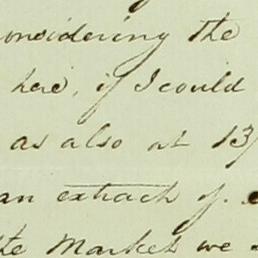 considering the
here, if I could
as also at 13/
an extract of
the Market we